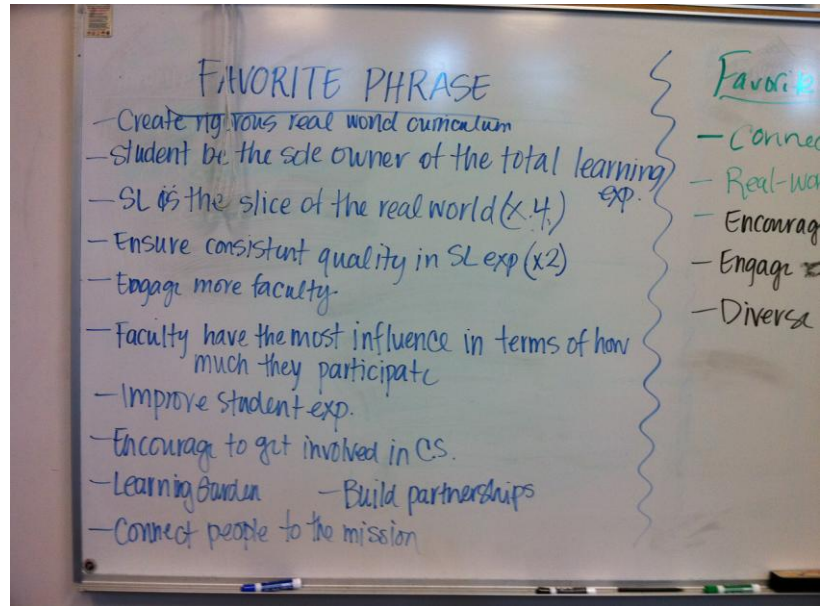 FAVORITE PHRASE
- Create rigirous real world curriculum
- Student be the sole owner of the total learning
exp.
- SL is the slice of the real world (x.4.)
- Ensure consistent quality in SL exp (x2)
- Engage more faculty.
- Faculty have the most influence in terms of how
much they participate
- Improve student exp.
- Encourage to get involved in C.S.
- Learning Garden - Build partnerships
- Connect people to the mission
Favorite
- Connec
- Real-wor
- Encourag
- Engage
- Diverse